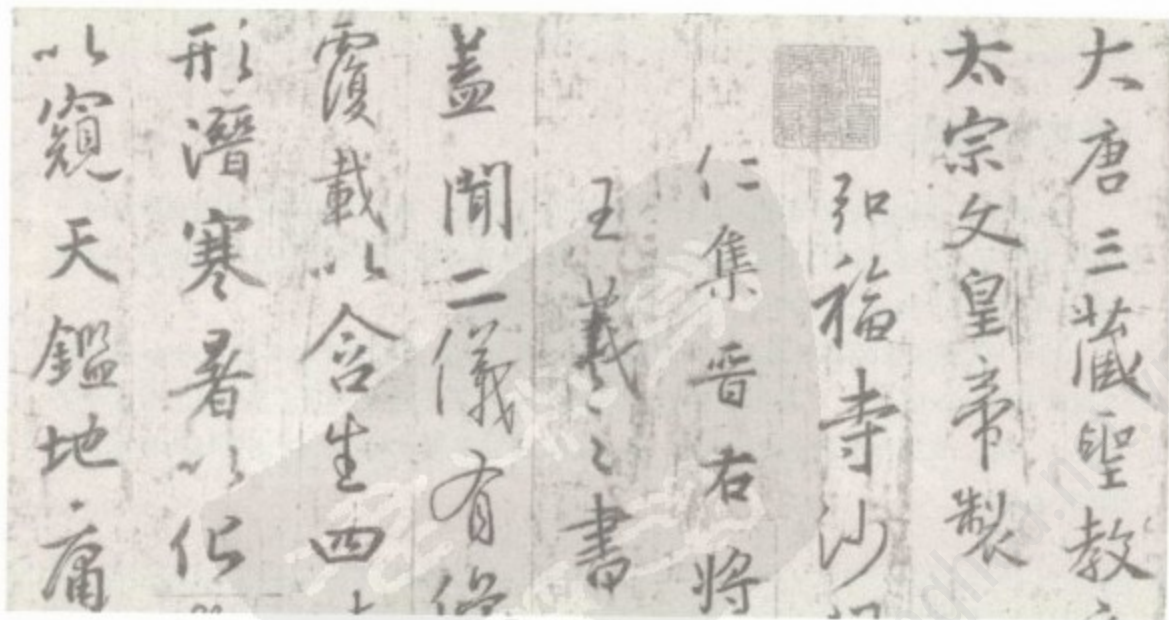 大唐三藏聖教
太宗文皇帝製
弘福寺沙
仁集晋右將
王羲之書
蓋聞二儀有
覆載以含生四
形潛寒暑以化
以窺天鑑地庸